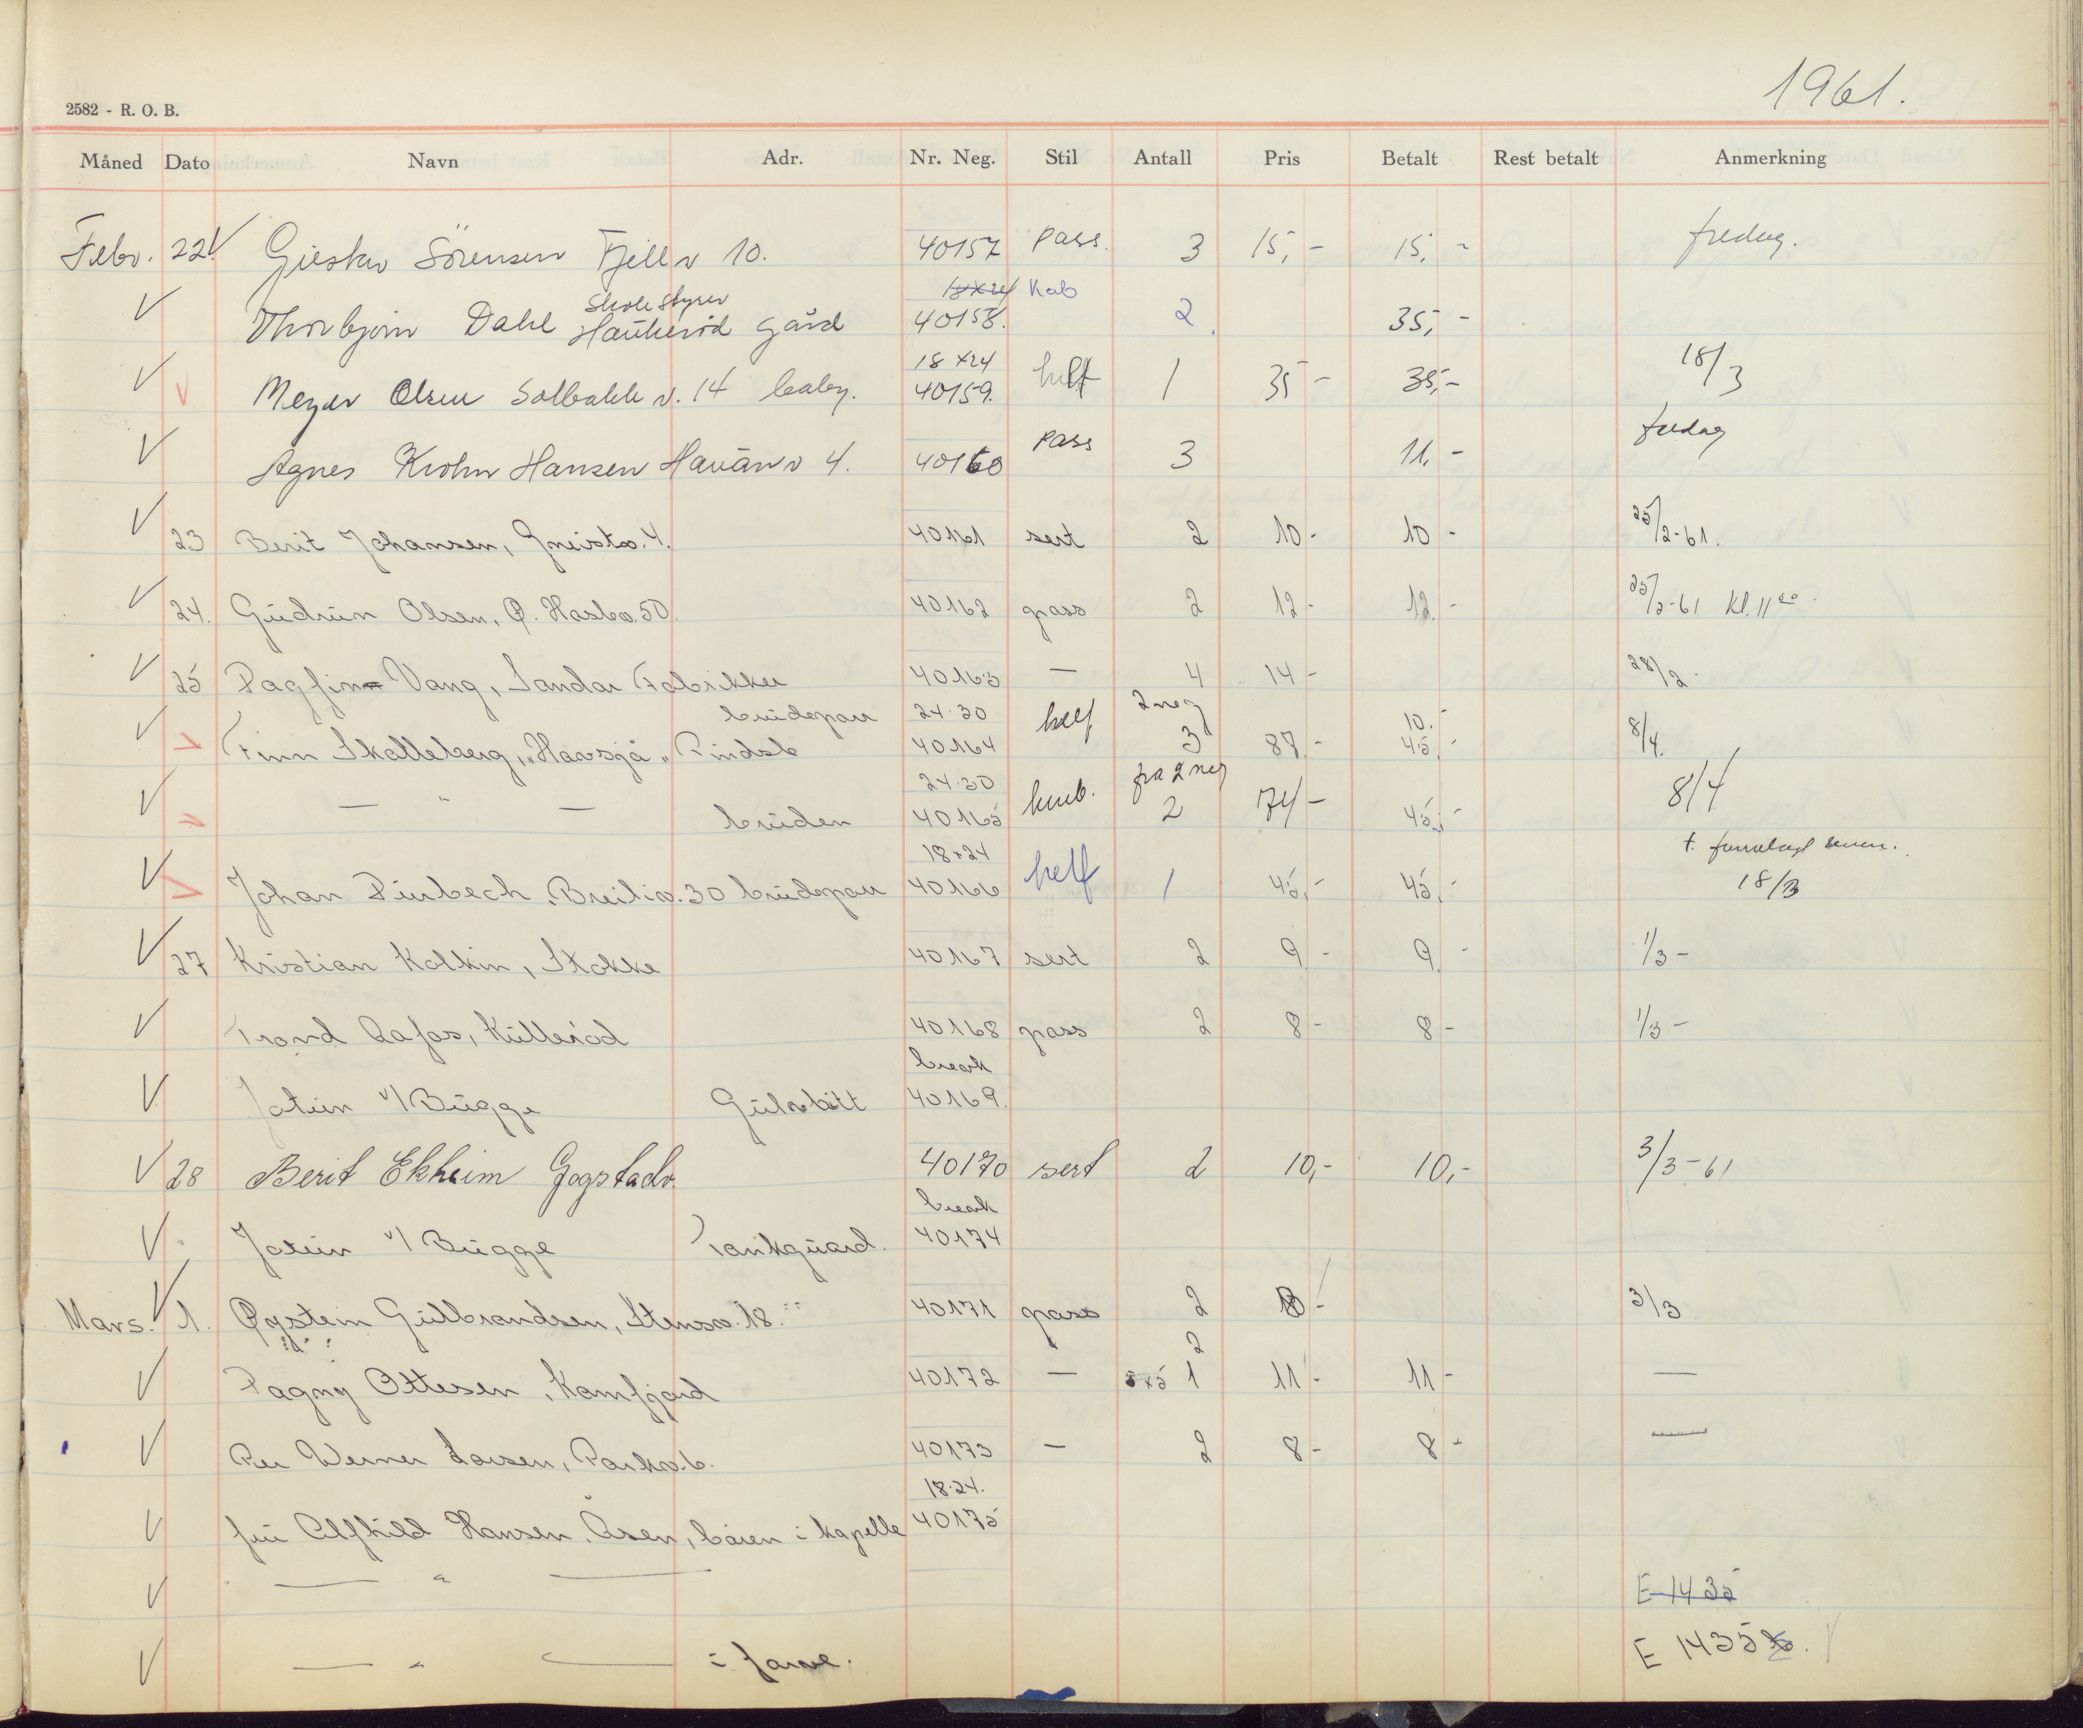 1961.
2582 - R. O. B.
Måned Dato Navn Adr. Nr. Neg. Stil Antall Pris Betalt Rest betalt Anmerkning
Febr. 22 Sörensen Fjellv 10. 40157 pass. 3 15,- 15,- fredag.
18x24 Kab
Skole styrer
Thorbjørn Dahl Haukerød gård 40158. 2 35,-
18x24
Meyer Olsen Solbakk v. 14 baby. 40159. helf 1 35- 35,- 18/3
Agnes Krohn Hansen Hauanv 4. 40160 pass 3 11,- fredag
23 Berit Johansen, Gneistv. 4. 40161 sert 2 10- 10- 25/2-61.
24. Gudrun Olsen, Ø. Haslev. 50. 40162 pass 2 12- 12- 25/2-61 Kl. 11
25 Dagfinn Vang, Sandar Fabrikker 40163 — 4 14- 28/2.
brudepar 24-30 helf 2 neg 10.-
Finn Skalleberg, "Havsjå" Rindsb 40164 3 87,- 45,- 8/4.
24-30 fra 2 neg
— " — bruden 40165 2 174- 45,- 8/4
18x24
Johan Durbech, Breiliv. 30 brudepar 40166 helf 1 45,- 45,- 18/3
27 Kristian Kolkin, Stokke 40167 sert 2 9- 9- 1/3-
Trond Aafos, Kullerød 40168 pass 2 8- 8- 1/3-
break
Jotun v/ Bugge Gulvkitt 40169.
28 Berit Ekheim Gogstadv. 40170 sert 2 10,- 10,- 3/3-61
break
Jotun v/ Bugge Tankguard. 40174
Mars. 1. Øystein Gulbrandsen, Stensv. 18. 40171 pass 2 8- 3/3
2
Dagny Ottesen, Kamfjord 40172 — 5x5 1 11- 11- —
Per Werner Larsen, Parkv. 6. 40173 — 2 8- 8- —
18-24.
fru Alfhild Hansen, Åsen, båren i kapelle 40175
— " — E 1435
— " — i farve. E 1435